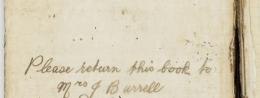 Please return this book to
Mrs J Burrell